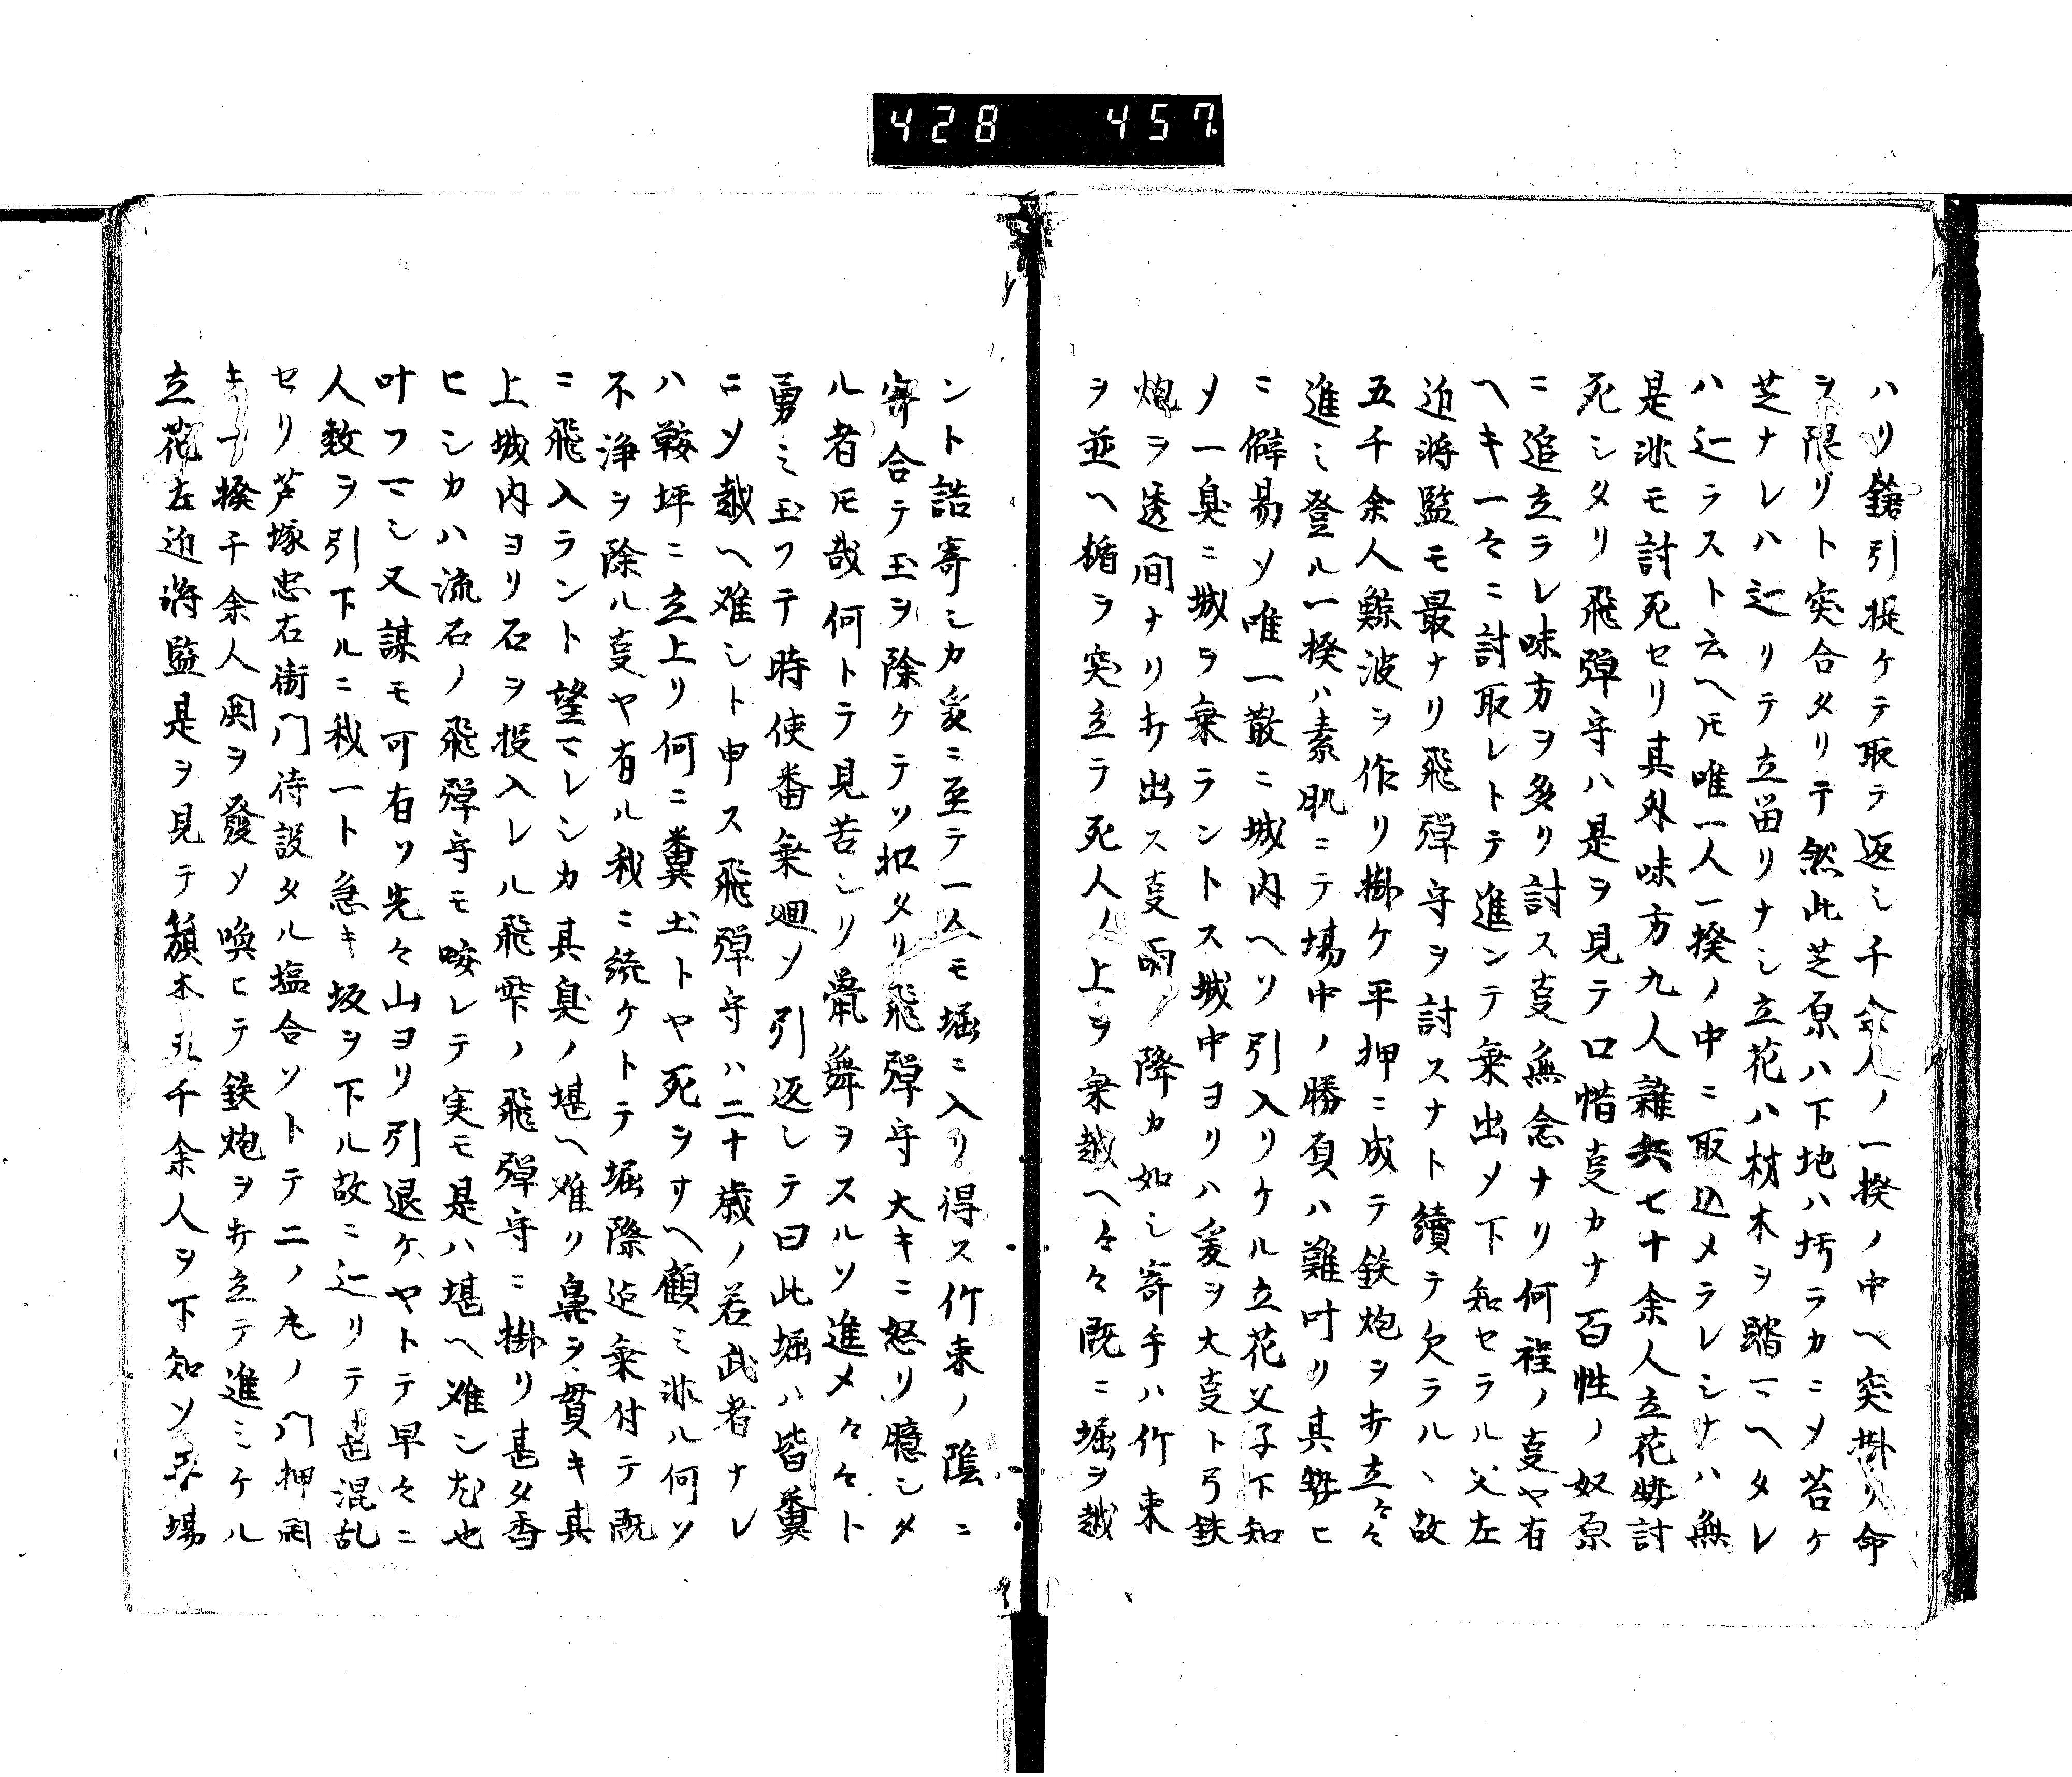 428 457
ハリ鎗引提ケテ取テ返シ千余人ノ一揆ノ中ヘ突掛リ命
ヲ限リト突合タリテ然此芝原ハ下地ハ圬ラカニメ苔ケ
芝ナレハ辷リテ立留リナシ立花ハ材木ヲ踏マヘタレ
ハ辷ラスト云ヘ𪜈唯一人一揆ノ中ニ取込メラレシナハ無
是非モ討死セリ其外味方九人雜兵七十余人立花勢討
死シタリ飛弾守ハ是ヲ見テ口惜㕝カナ百性ノ奴原
ニ追立ラレ味方ヲ多リ討ス㕝無念ナリ何程ノ㕝ヤ有
ヘキ一々ニ討取レトテ進ンテ乗出メ下知セラル父左
近将監モ最ナリ飛弾守ヲ討スナト續テ欠ラルヽ故
五千余人鯨波ヲ作リ掛ケ平押ニ成テ鉄炮ヲ打立々々
進ミ登ル一揆ハ素肌ニテ場中ノ勝負ハ難叶リ其勢ヒ
ニ僻易ソ唯一散ニ城内ヘソ引入リケル立花父子下知
メ一臭ニ城ヲ乗ラントス城中ヨリハ爰ヲ大㕝ト弓鉄
炮ヲ透間ナリ打出ス㕝雨ノ降カ如シ寄手ハ竹束
ヲ並ヘ楯ヲ突立テ死人ノ上ヲ乗越ヘ々々既ニ堀ヲ越
ント詰寄シカ爰ニ至テ一人モ堀ニ入リ得ス竹束ノ陰ニ
寄合テ玉ヲ除ケテソ扣タリ飛弾守大キニ怒リ臆シタ
ル者𪜈哉何トテ見苦シリ鼠舞ヲスルソ進メ々々ト
勇ミ玉フテ時使番乗廻ソ引返シテ曰此堀ハ皆糞
ニソ越ヘ难シト申ス飛弾守ハ二十歳ノ若武者ナレ
ハ鞍坪ニ立上リ何ニ糞土トヤ死ヲサヘ顧ミ非ル何ソ
不浄ヲ除ル㕝ヤ有ル我ニ続ケトテ堀際迄乗付テ既
ニ飛入ラント望マレシカ其臭ノ堪ヘ难リ鼻ヲ貫キ其
上城内ヨリ石ヲ投入レル飛雫ノ飛弾守ニ掛リ甚タ香
ヒシカハ流石ノ飛弾守モ呅レテ実モ是ハ堪ヘ难シ尤也
叶フマシ又謀モ可有リ先々山ヨリ引退ケヤトテ早々ニ
人数ヲ引下ルニ我一ト急キ坂ヲ下ル故ニ辷リテ甚混乱
セリ芦塚忠右衛門待設タル塩合ソトテ二ノ丸ノ門押開
キ一揆千余人鬨ヲ發メ喚ヒテ鉄炮ヲ打立テ進ミケル
立花左近将監是ヲ見テ籏本五千余人ヲ下知ソ平場